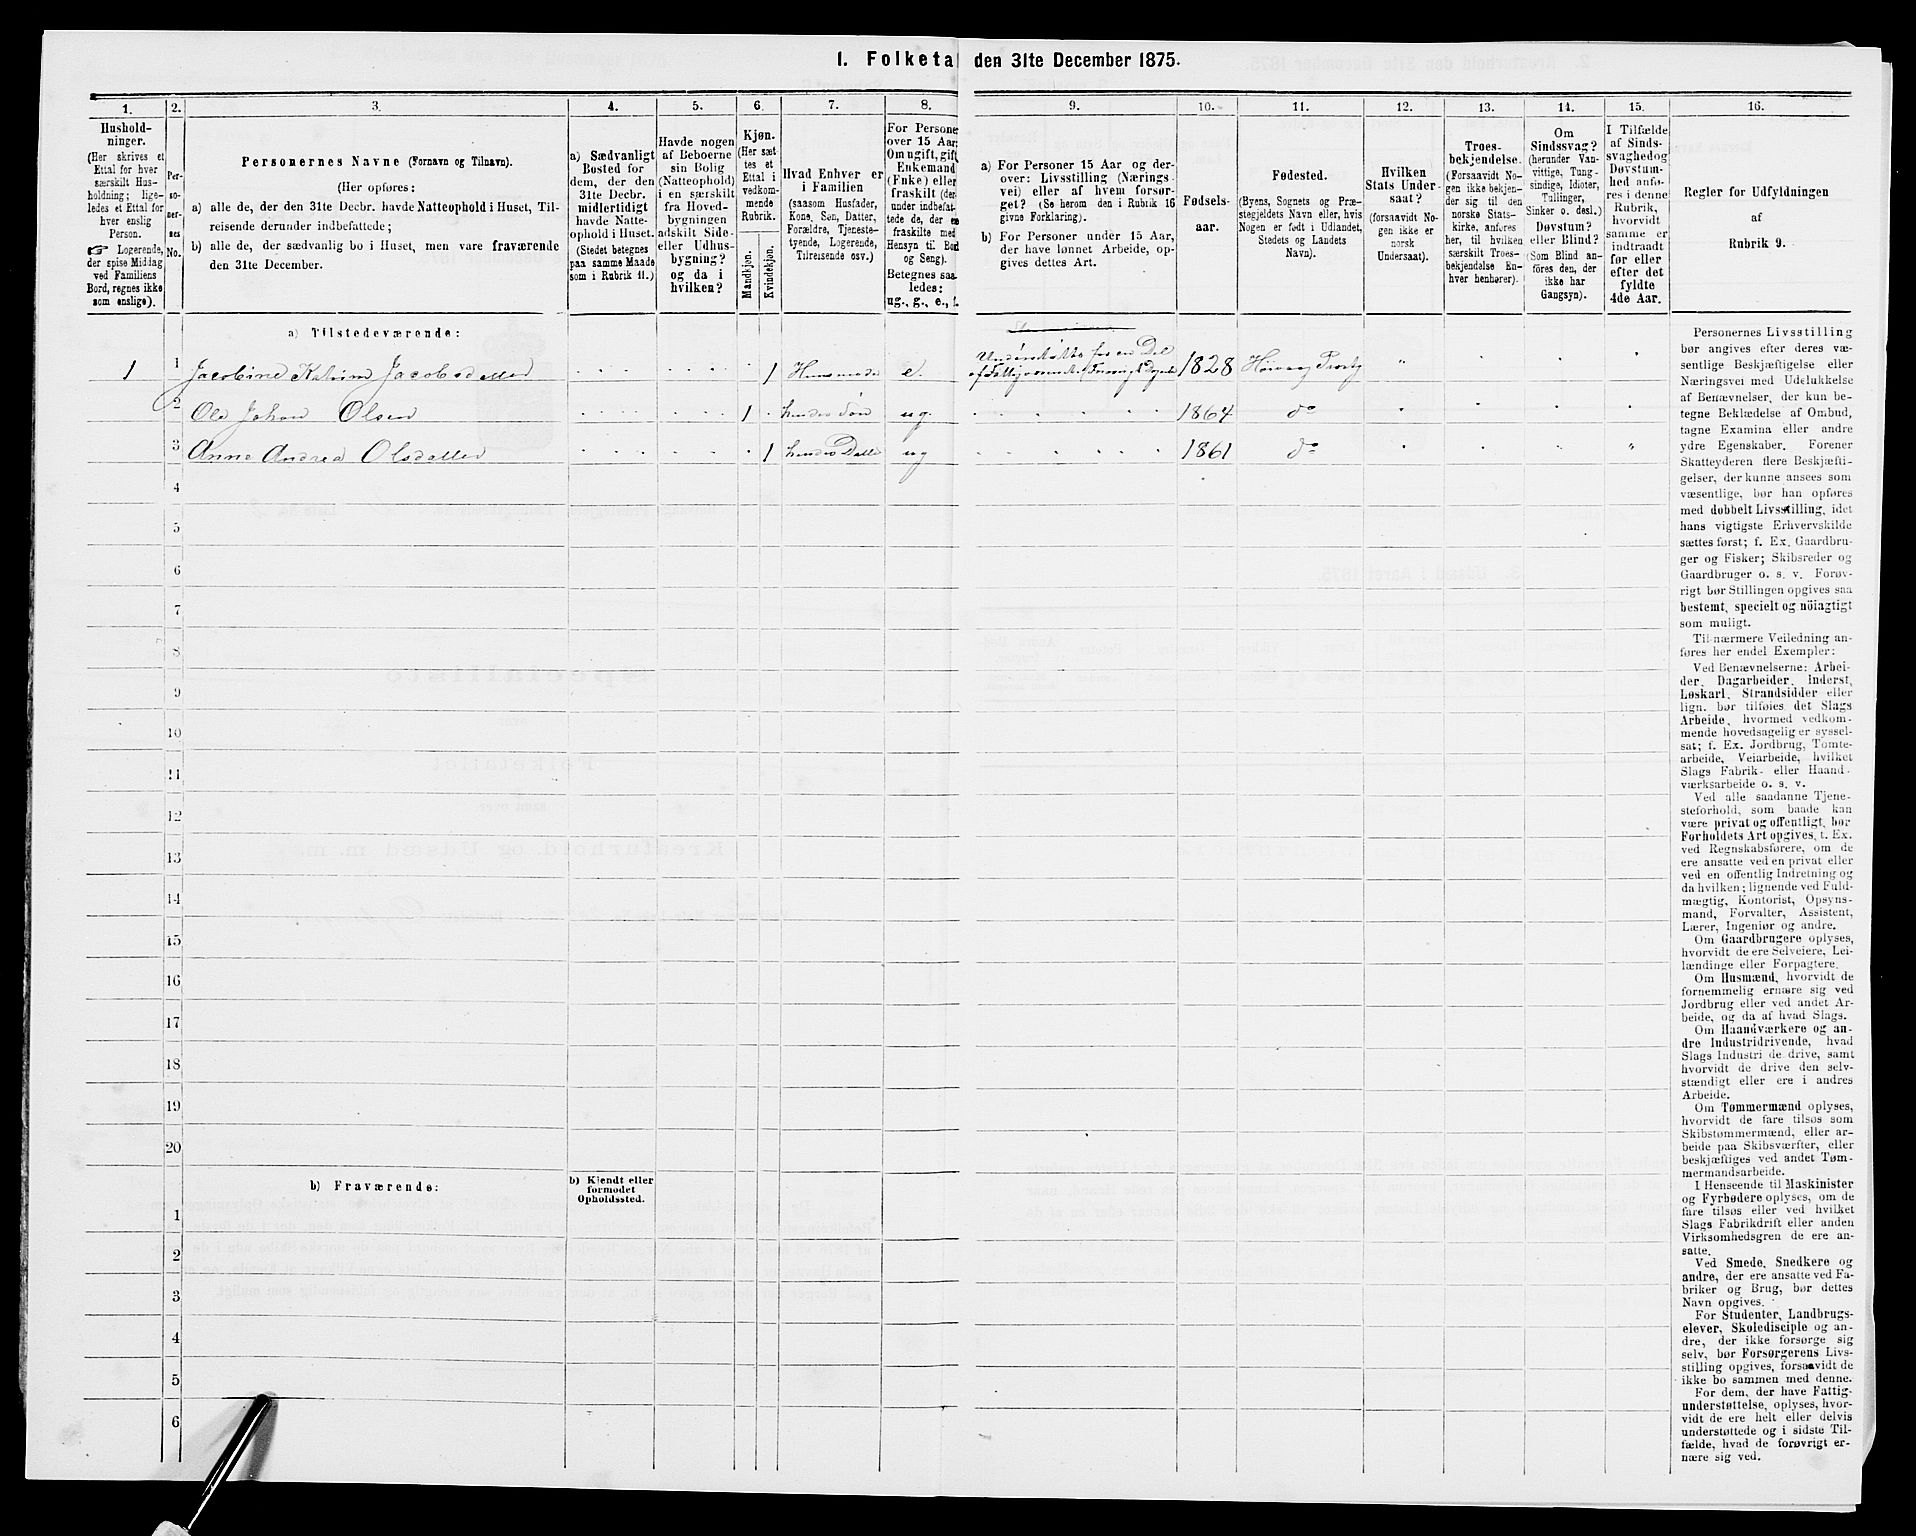 1. Folketal den 31te December 1875.
1.
2.
3.
4.
5.
6.
7.
8.
9.
10.
11.
12.
13.
14.
15.
16.
Hushold-
ninger.
(Her skrives et
Ettal for hver
særskilt Hus-
holdning; lige-
ledes et Ettal for
hver enslig
Person.
☞ Logerende,
der spise Middag
ved Familiens
Bord, regnes ikke
som enslige).
Per-
so-
ner-
nes
No.
Personernes Navne (Fornavn og Tilnavn).
(Her opføres:
a) alle de, der den 31te Decbr. havde Natteophold i Huset, Til-
reisende derunder indbefattede;
b) alle de, der sædvanlig bo i Huset, men vare fraværende
den 31te December.
a) Sædvanligt
Bosted for
dem, der den
31te Decbr.
midlertidigt
havde Natte-
ophold i Huset.
(Stedet betegnes
paa samme Maade
som i Rubrik 11.)
Havde nogen
af Beboerne
sin Bolig
(Natteophold)
i en særskilt
fra Hoved-
bygningen
adskilt Side-
eller Udhus-
bygning?
og da i
hvilken?
Kjøn.
(Her sæt
tes et
Ettal i
vedkom-
mende
Rubrik.
Mandkjøn.
Kvindekjøn.
Hvad Enhver er
i Familien
(saasom Husfader,
Kone, Søn, Datter,
Forældre, Tjeneste-
tyende, Logerende,
Tilreisende osv.)
For Persone
over 15 Aar:
Om ugift, gift
Enkemand
(Enke) eller
fraskilt (der-
under indbefat-
tede de, der ere
fraskilte med
Hensyn til Bord
og Seng).
Betegnes saa
ledes:
ug., g., e., f.
a) For Personer 15 Aar og der-
over: Livsstilling (Nærings-
vei) eller af hvem forsør-
get? (Se herom den i Rubrik 16
givne Forklaring).
b) For Personer under 15 Aar,
der have lønnet Arbeide, op-
gives dettes Art.
Fødsels-
aar.
Fødested.
(Byens, Sognets og Præ-
stegjeldets Navn eller, hvis
Nogen er født i Udlandet,
Stedets og Landets
Navn).
Hvilken
Stats Under-
saat?
(forsaavidt No-
gen ikke er
norsk
Undersaat).
Troes-
bekjendelse.
(Forsaavidt No-
gen ikke bekjen-
der sig til den
norske Stats-
kirke, anføres
her, til hvilken
særskilt Troes-
bekjendelse En-
hver henhører).
Om
Sindssvag?
(herunder Van-
vittige, Tung-
sindige, Idioter,
Tullinger,
Sinker o. desl.)
Døvstum?
eller Blind?
(Som Blind an-
føres den, der
ikke har
Gangsyn).
I Tilfælde
af Sinds-
svaghed og
Døvstum-
hed anfø-
res i denne
Rubrik,
hvorvidt
samme er
indtraadt
før eller
efter det
fyldte
4de Aar.
Regler for Udfyldningen
af
Rubrik 9.
a) Tilstedeværende:
1 1 Jacobine Katrine Jacobsdatter 1 Husmoder e. Understøttes for en Del
af Fattigvæsenet 1828 Høivaag Præstg "
2 Ole Johan Olsen 1 hendes Søn ug. 1864 do
3 Anne Andrea Olsdatter 1 hendes Datter ug 1861 do "
4
5
6
7
8
9
10
11
12
13
14
15
16
17
18
19
20
b) Fraværende:
b) Kjendt eller
formodet
Opholdssted.
1
2
3
4
5
6
Personernes Livsstilling
bør angives efter deres væ-
sentlige Beskjæftigelse eller
Næringsvei med Udelukkelse
af Benævnelser, der kun be-
tegne Beklædelse af Ombud,
tagne Examina eller andre
ydre Egenskaber. Forener
Skatteyderen flere Beskjæfti-
gelser, der kunne ansees som
væsentlige, bør han opføres
med dobbelt Livsstilling, idet
hans vigtigste Erhvervskilde
sættes først; f. Ex. Gaardbru-
ger og Fisker; Skibsreder og
Gaardbruger o. s. v. Forøv-
rigt bør Stillingen opgives saa
bestemt, specielt og nöiagtigt
som muligt.
Til nærmere Veiledning an-
føres her endel Exempler:
Ved Benævnelserne: Arbei-
der, Dagarbeider, Inderst,
Løskarl, Strandsidder eller
lign. bør tilføies det Slags
Arbeide, hvormed vedkom-
mende hovedsagelig er syssel-
sat; f. Ex. Jordbrug, Tomte-
arbeide, Veiarbeide, hvilket
Slags Fabrik- eller Haand-
værksarbeide o. s. v.
Ved alle saadanne Tjene-
steforhold, som baade kan
være privat og offentligt, bør
Forholdets Art opgives, t. Ex.
ved Regnskabsførere, om de
ere ansatte ved en privat eller
ved en offentlig Indretning og
da hvilken; lignende ved Fuld-
mægtig, Kontorist, Opsyns-
mand, Forvalter, Assistent,
Lærer, Ingeniør og andre.
Om Gaardbrugere oplyses,
hvorvidt de ere Selveiere, Lei-
lændinge eller Forpagtere.
Om Husmænd, hvorvidt de
fornemmelig ernære sig ved
Jordbrug eller ved andet Ar-
beide, og da af hvad Slags.
Om Haandværkere og an-
dre Industridrivende, hvad
Slags Industri de drive, samt
hvorvidt de drive den selv-
stændigt eller ere i andres
Arbeide.
Om Tømmermænd oplyses,
hvorvidt de fare tilsøs som
Skibstømmermænd, eller ar-
beide paa Skibsværfter, eller
beskjæftiges ved andet Tøm-
mermandsarbeide.
I Henseende til Maskinister
og Fyrbødere oplyses, om de
fare tilsøs eller ved hvilket
Slags Fabrikdrift eller anden
Virksomhedsgren de ere an-
satte.
Ved Smede, Snedkere og
andre, der ere ansatte ved Fa-
briker og Brug, bør dettes
Navn opgives.
For Studenter, Landbrugs-
elever, Skoledisciple og an-
dre, der ikke forsørge sig
selv, bør Forsørgerens Livs-
stilling opgives, forsaavidt de
ikke bo sammen med denne.
For dem, der have Fattig-
understøttelse, oplyses, hvor-
vidt de ere helt eller delvis
understøttede og i sidste Til-
fælde, hvad de forøvrigt er-
nære sig ved.